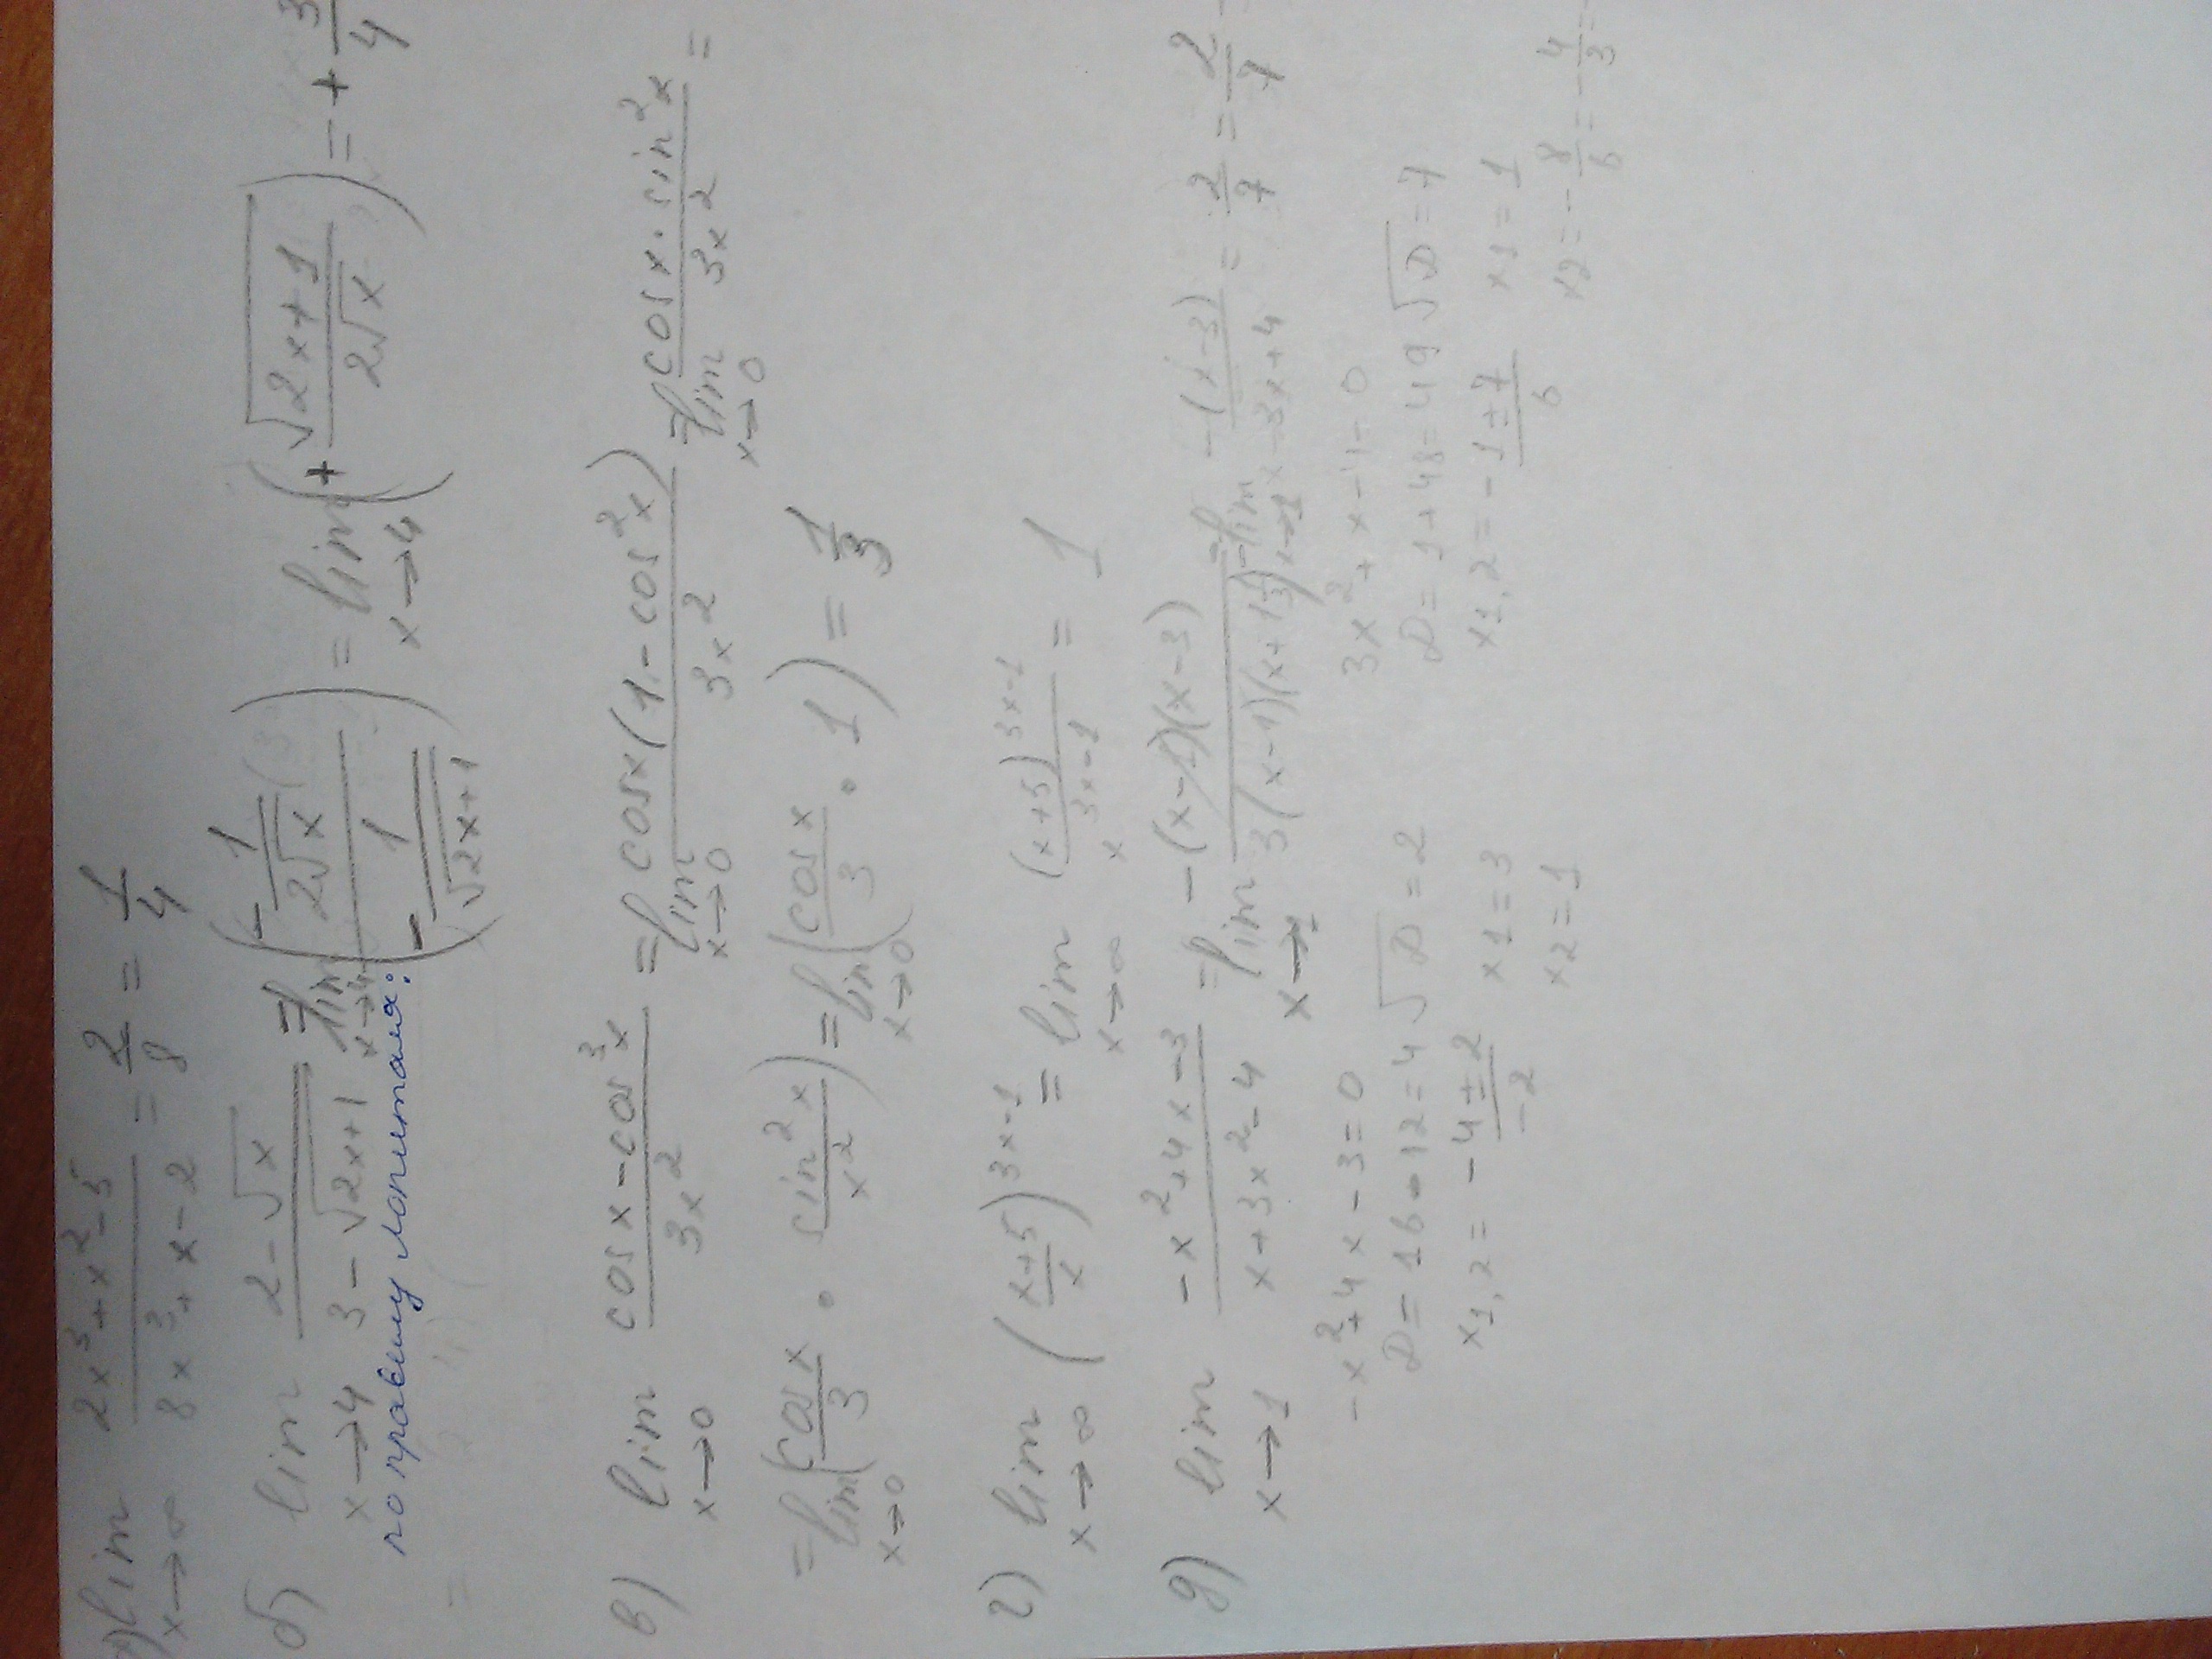 а) lim x→∞ (2x³+x²-5)/(8x³+x-2) = 2/8 = 1/4
б) lim x→4 (2-√x)/(3-√(2x+1)) = lim x→4 (-1/(2√x))/(-1/√(2x+1)) = lim x→4 (+√(2x+1)/(2√x)) = +3/4
по правилу Лопиталя:
=
в) lim x→0 (cosx-cos³x)/(3x²) = lim x→0 (cosx(1-cos²x))/(3x²) = lim x→0 (cosx·sin²x)/(3x²) =
= lim x→0 (cosx/3 · sin²x/x²) = lim x→0 (cosx/3 · 1) = 1/3
г) lim x→∞ ((x+5)/x)^(3x-1) = lim x→∞ (x+5)^(3x-1)/x^(3x-1) = 1
д) lim x→1 (-x²+4x-3)/(x+3x²-4) = lim x→1 (-(x-1)(x-3))/(3(x-1)(x+1 1/3)) = lim x→1 (-(x-3))/(3x+4) = 2/7 = 2/7
-x²+4x-3=0
D=16-12=4 √D=2
x1,2= (-4±2)/(-2) x1=3
x2=1
3x²+x-4=0
D=1+48=49 √D=7
x1,2= (-1±7)/6 x1=1
x2=-8/6=-4/3=